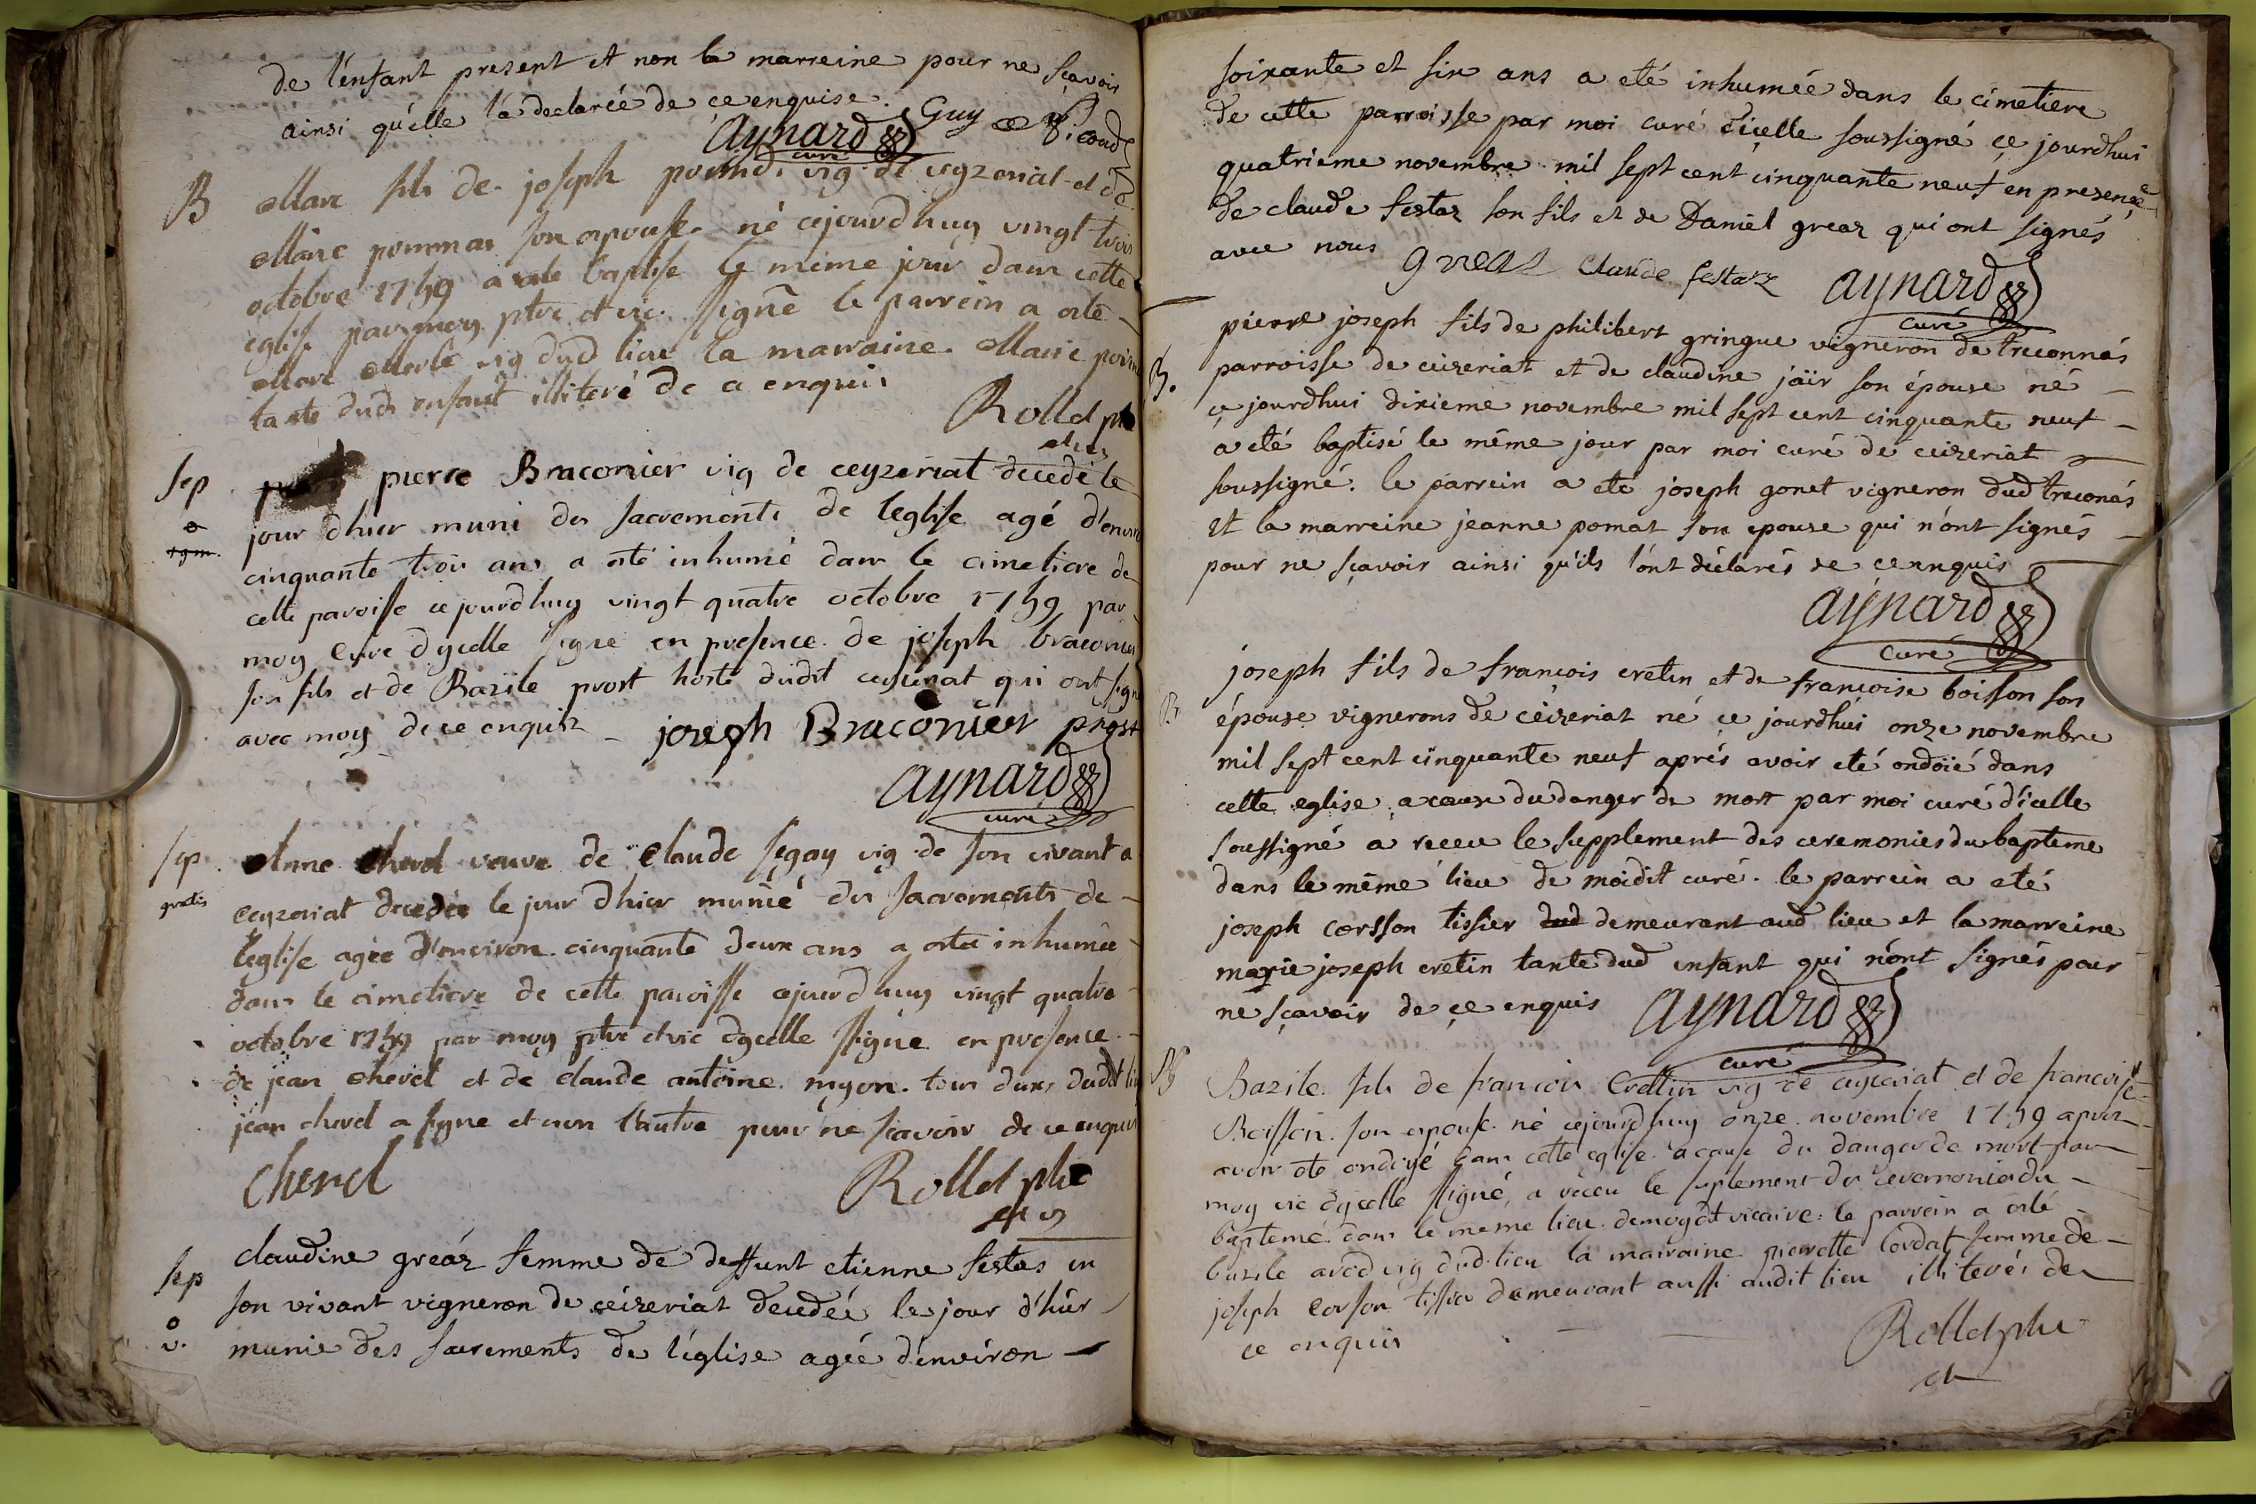 de l'enfant present et non la marreine pour ne sçavoir
ainsi qu'elle l'a declarée de ce enquise. Guy
aynard
curé
B Marc fils de joseph vig. de ceyzeriat et de
Marie pommat son epouse né cejourdhuy vingt trois
octobre 1759 a esté baptisé le meme jour dans cette
eglise par moy ptre et vic. signé le parrein a esté
Marc Merle vig dud lieu la marraine Marie
tante dud enfant illiteré de ce enquis
Rollet ptre
et vic
Sep pierre Braconier vig de ceyzeriat decedé le
jour d'hier muni des sacrements de l'eglise agé d'environ
cinquante trois ans a esté inhumé dans le cimetiere de
cette paroisse ce jourdhuy vingt quatre octobre 1759 par
moy curé dycelle signé en presence de joseph braconier
son fils et de Bazile prost hoste dudit ceyzeriat qui ont signé
avec moy de ce enquis joseph Braconier prost
aynard
curé
Sep Anne Chevel veuve de Claude segay vig de son vivant a
gratis
Ceyzeriat decedée le jour d'hier munié des sacrements de
l'eglise agée d'environ cinquante deux ans a estée inhumée
dans le cimetiere de cette paroisse cejourdhuy vingt quatre
octobre 1759 par moy ptre et vic dycelle signé en presence
de jean chevel et de claude antoine myon tous deux dudit lieu
jean chevel a signe et non l'autre pour ne scavoir de ce enquis
Chevel Rollet ptre
et vic
Sep claudine greaz femme de deffunt etienne festas en
son vivant vigneron de ceizeriat decedée le jour d'hier
munie des sacrements de l'église agée d'environ
soixante et six ans a eté inhumée dans le cimetiere
de cette parroisse par moi curé d'icelle soussigné ce jourdhui
quatrieme novembre mil sept cent cinquante neuf en presence
de claude festaz son fils et de Daniel greaz qui ont signés
avec nous greaz Claude festaz aynard
curé
B. pierre joseph fils de philibert gringue vigneron de treconnas
parroisse de ceizeriat et de claudine jaïr son épouse né
ce jourdhui dixieme novembre mil sept cent cinquante neuf
a eté baptisé le même jour par moi curé de ceizeriat
soussigné. le parrein a eté joseph gonet vigneron dud treconas
et la marreine jeanne pomat son epouse qui n'ont signés
pour ne sçavoir ainsi qu'ils l'ont déclarés de ce enquis
aynard
curé
B joseph fils de françois cretin et de françoise boisson son
épouse vignerons de céizeriat né ce jourdhui onze novembre
mil sept cent cinquante neuf aprés avoir eté ondoïé dans
cette eglise a cause du danger de mort par moi curé d'icelle
soussigné a receu le supplement des ceremonies du bapteme
dans le même lieu de moidit curé. le parrein a eté
joseph corsson tissier dud demeurant aud lieu et la marreine
marie joseph cretin tante dud enfant qui n'ont signés pour
ne sçavoir de ce enquis aynard
curé
B Bazile fils de francois Crettin vig de ceyzeriat et de francoise
Boisson son epouse né cejourdhuy onze novembre 1759 apres
avoir eté ondoyé dans cette eglise a cause du danger de mort par
moy vic dycelle signé, a receu le suplement des ceremonies du
bapteme dans le meme lieu de moydt vicaire. le parrein a esté
bazile avod vig dud lieu la marraine pierrette cordat femme de
joseph Corson tissier demeurant aussi audit lieu illiterés de
ce enquis Rollet ptre